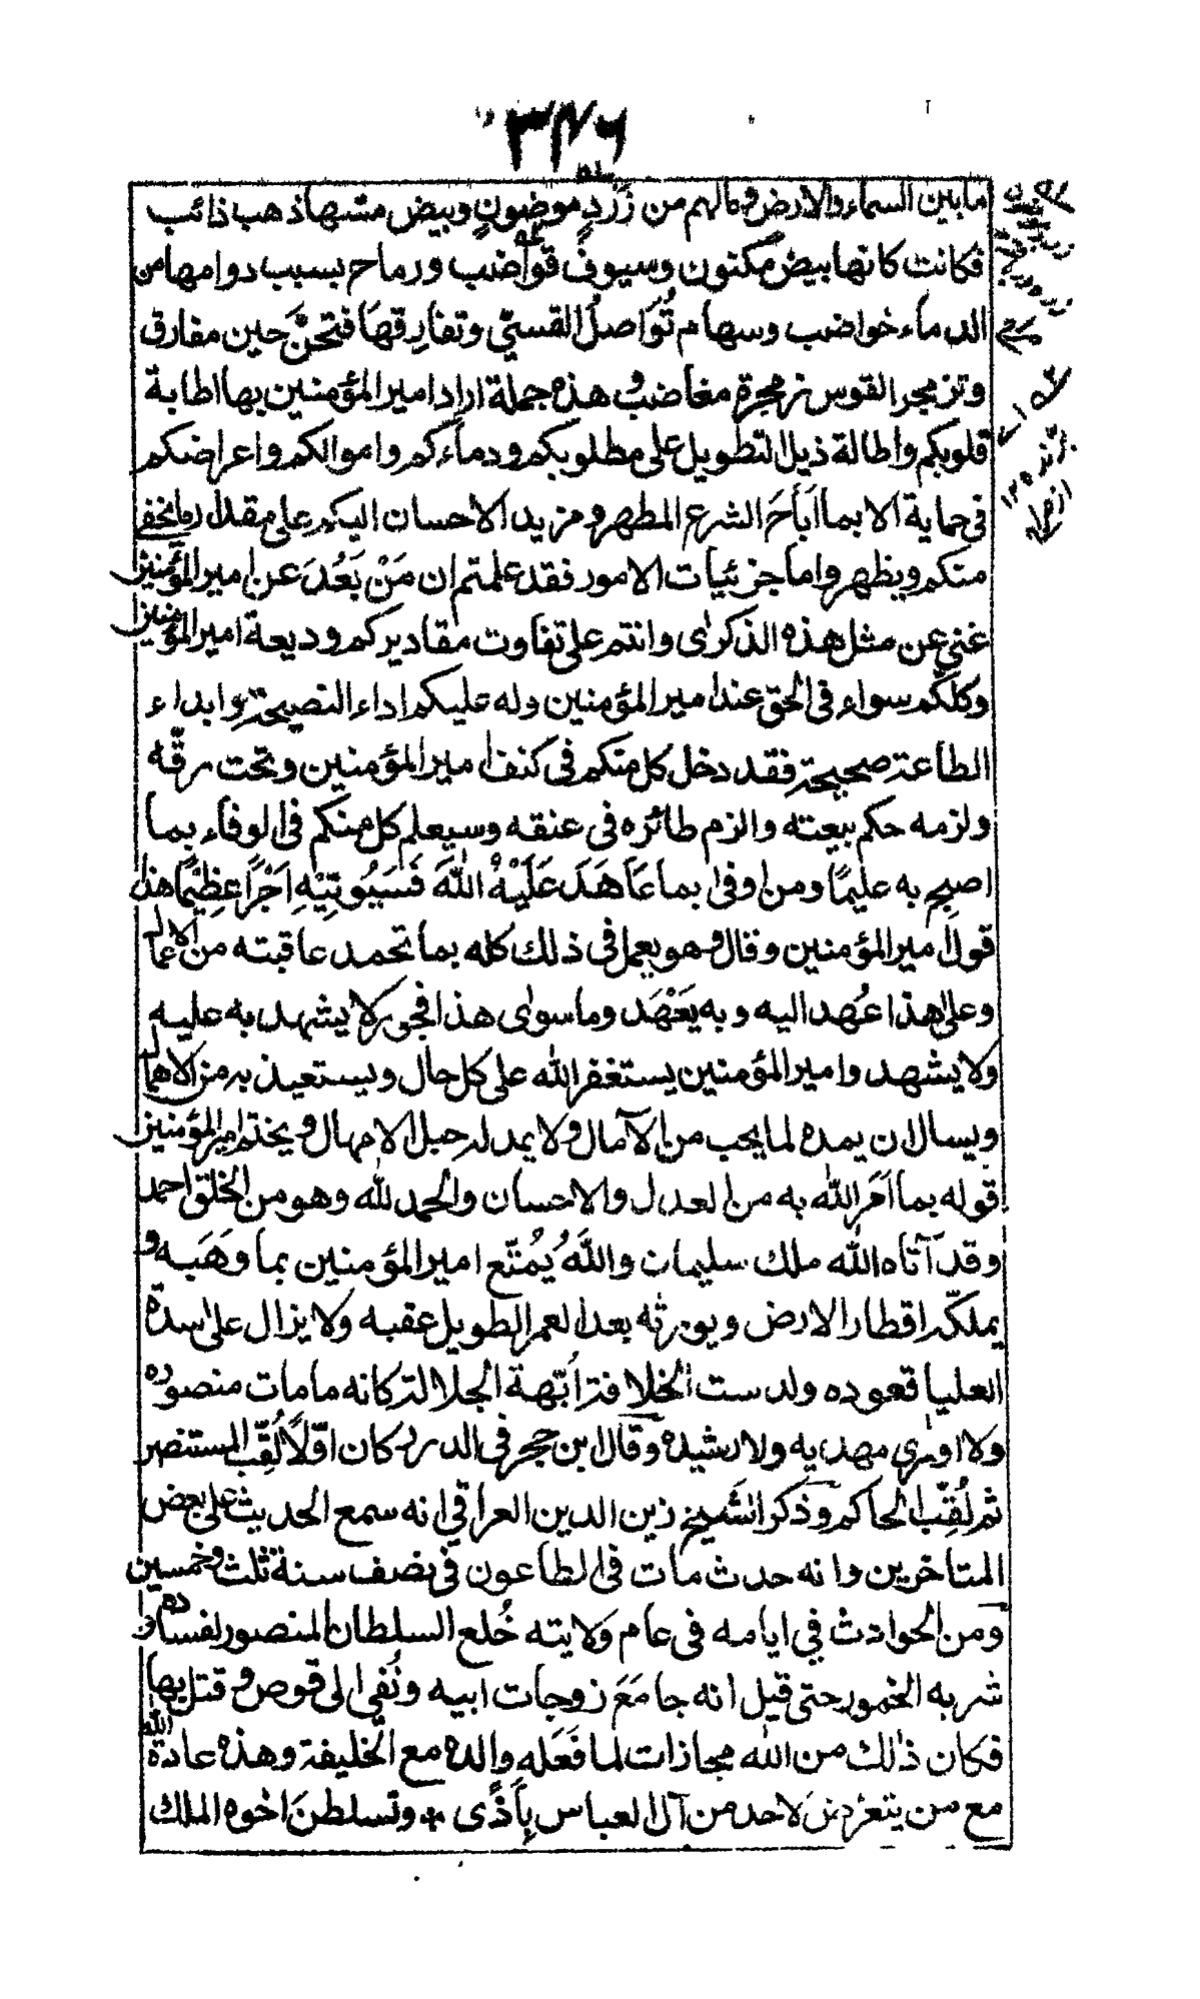 ٣٤٦
ما بين السماء والارض وكالهم من زَرَدٍ موضونٍ وبيض مسّها ذهب ذائب
فكانت كانها بيض مكنون وسيوف قواضب ورماح بسبب دوامها من
الدماء خواضب وسهام تُوَاصلُ القسيّ وتفارِقهَا فتحنّ حين مفارق
وتزمجر القوس زمجرة مغاضب وهذه جملة اراد امير المؤمنين بها اطابة
قلوبكم واطالة ذيل التطويل على مطلوبكم ودماءكم واموالكم واعراضكم
فى حماية الا بما اَبَاحَ الشرع المطهر ومزيد الاحسان اليكم على مقدار ما يخفى
منكم ويظهر واما جزئيات الامور فقد علمتم ان مَنْ بَعُدَ عن امير المؤمنين
غنى عن مثل هذه الذكرى وانتم على تفاوت مقاديركم وديعة امير المؤمنين
وكلّكم سواء فى الحق عند امير المؤمنين وله عليكم اداء النصيحة وابداء
الطاعة صحيحة فقد دخل كل منكم فى كنف امير المؤمنين وتحت رقّه
ولزمه حكم بيعته والزم طائره فى عنقه وسيعلم كل منكم فى الوفاء بما
اصبح به عليمًا ومن اوفى بما عَاهَدَ عَلَيْهُ اللّٰهَ فَسَيُوتِيْهِ اَجْرًا عظِيْمًا هذا
قول امير المؤمنين وقال وهو يعمل فى ذلك كله بما تحمد عاقبته من الاعمال
وعلى هذا عُهد اليه وبه يَعْهَد وما سوى هذا فجور لا يشهد به عليه
ولا يشهد وامير المؤمنين يستغفر اللّٰه على كل حال ويستعيذ به من الاهمال
ويسال ان يمده لما يجب من الآمال ولا يمد له حبل الامهال ويختم امير المؤمنين
قوله بما اَمَر اللّٰه به من العدل والاحسان والحمد للّٰه وهو من الخلق احمد
وقد آتاه اللّٰه ملك سليمان واللّٰهُ يُمْتّع امير المؤمنين بما وَهَبه و
يملكّه اقطار الارض ويورثه بعد العمر الطويل عقبه ولا يزال على سدّة
العليا قعوده ولدست الخلافة اُبّهة الجلالة كانه ما مات منصوره
ولا اودى مهديه ولا رشيده وقال ابن حجر فى الدرر كان اوّلًا لُقِّب المستنصر
ثم لُقِّب الحاكم وذكر الشَّيخ زين الدين العراقي انه سمع الحديث على بعض
المتاخرين وانه حدث مات فى الطاعون فى نصف سنة ثلث وخمسين
ومن الحوادث في ايامه فى عام ولايته خُلع السلطان المنصور لفساده و
شربه الخمور حتى قيل انه جامَعَ زوجات ابيه ونُفى الى قوص وقتل بها
فكان ذلك من اللّٰه مجازات لما فَعَله والده مع الخليفة وهذه عادة اللّٰه
مع من يتعرّض لاحد من آل العباس بِأَذًى * وتسلطنَ اخوه الملك